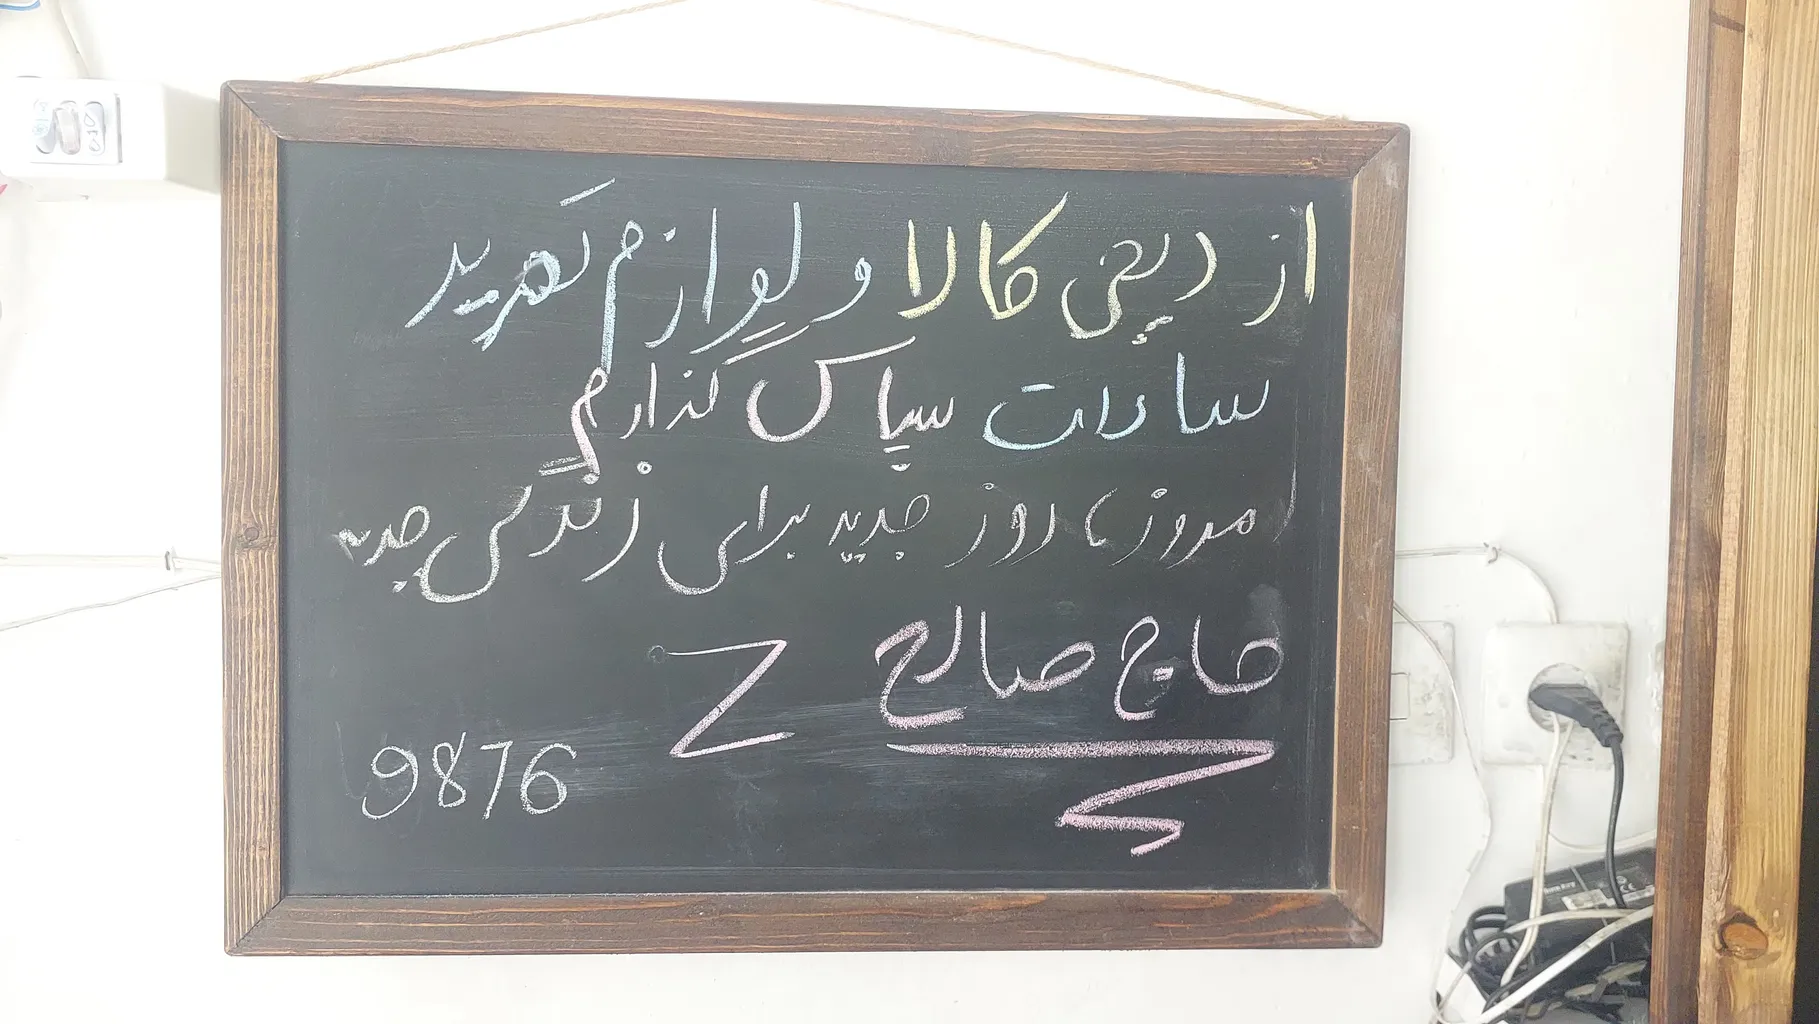 از دیجی کالا و لوازم تحریر
سادات سپاس گذارم
امروز، روز جدید برای زندگی جدید
حاج صالح Z
9876